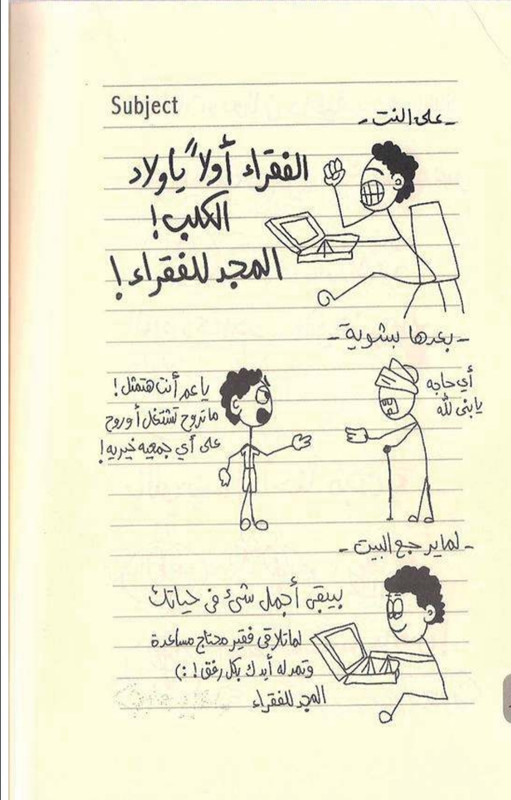 Subject
- على النت -
الفقراء أولاً ياولاد
الكلب!
المجد للفقراء!
- بعدها بشوية -
أي حاجه
يابنى لله
ياعم أنت هتمثل!
ماتروح تشتغل أو روح
على أي جمعيه خيريه!
- لما يرجع البيت -
بيبقى أجمل شئ فى حياتك
لما تلاقى فقير محتاج مساعدة
وتمد له أيدك بكل رفق! :)
المجد للفقراء